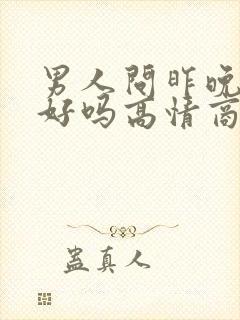 男人問昨晚
好吗高情商
蛊真人